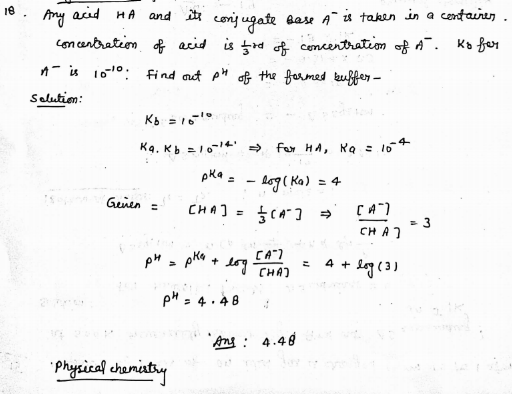 18. Any acid HA and its conjugate Base A⁻ is taken in a container.
concentration of acid is 1/3 rd of concentration of A⁻. Kb for
A⁻ is 10⁻¹⁰: Find out pH of the formed buffer –
Solution:
Kb = 10⁻¹⁰
Ka. Kb = 10⁻¹⁴ ⇒ For HA, Ka = 10⁻⁴
pKa = - log(Ka) = 4
Given = [HA] = 1/3 [A⁻] ⇒ [A⁻]/[HA] = 3
pH = pKa + log [A⁻]/[HA] = 4 + log(3)
pH = 4.48
Ans: 4.48
Physical chemistry